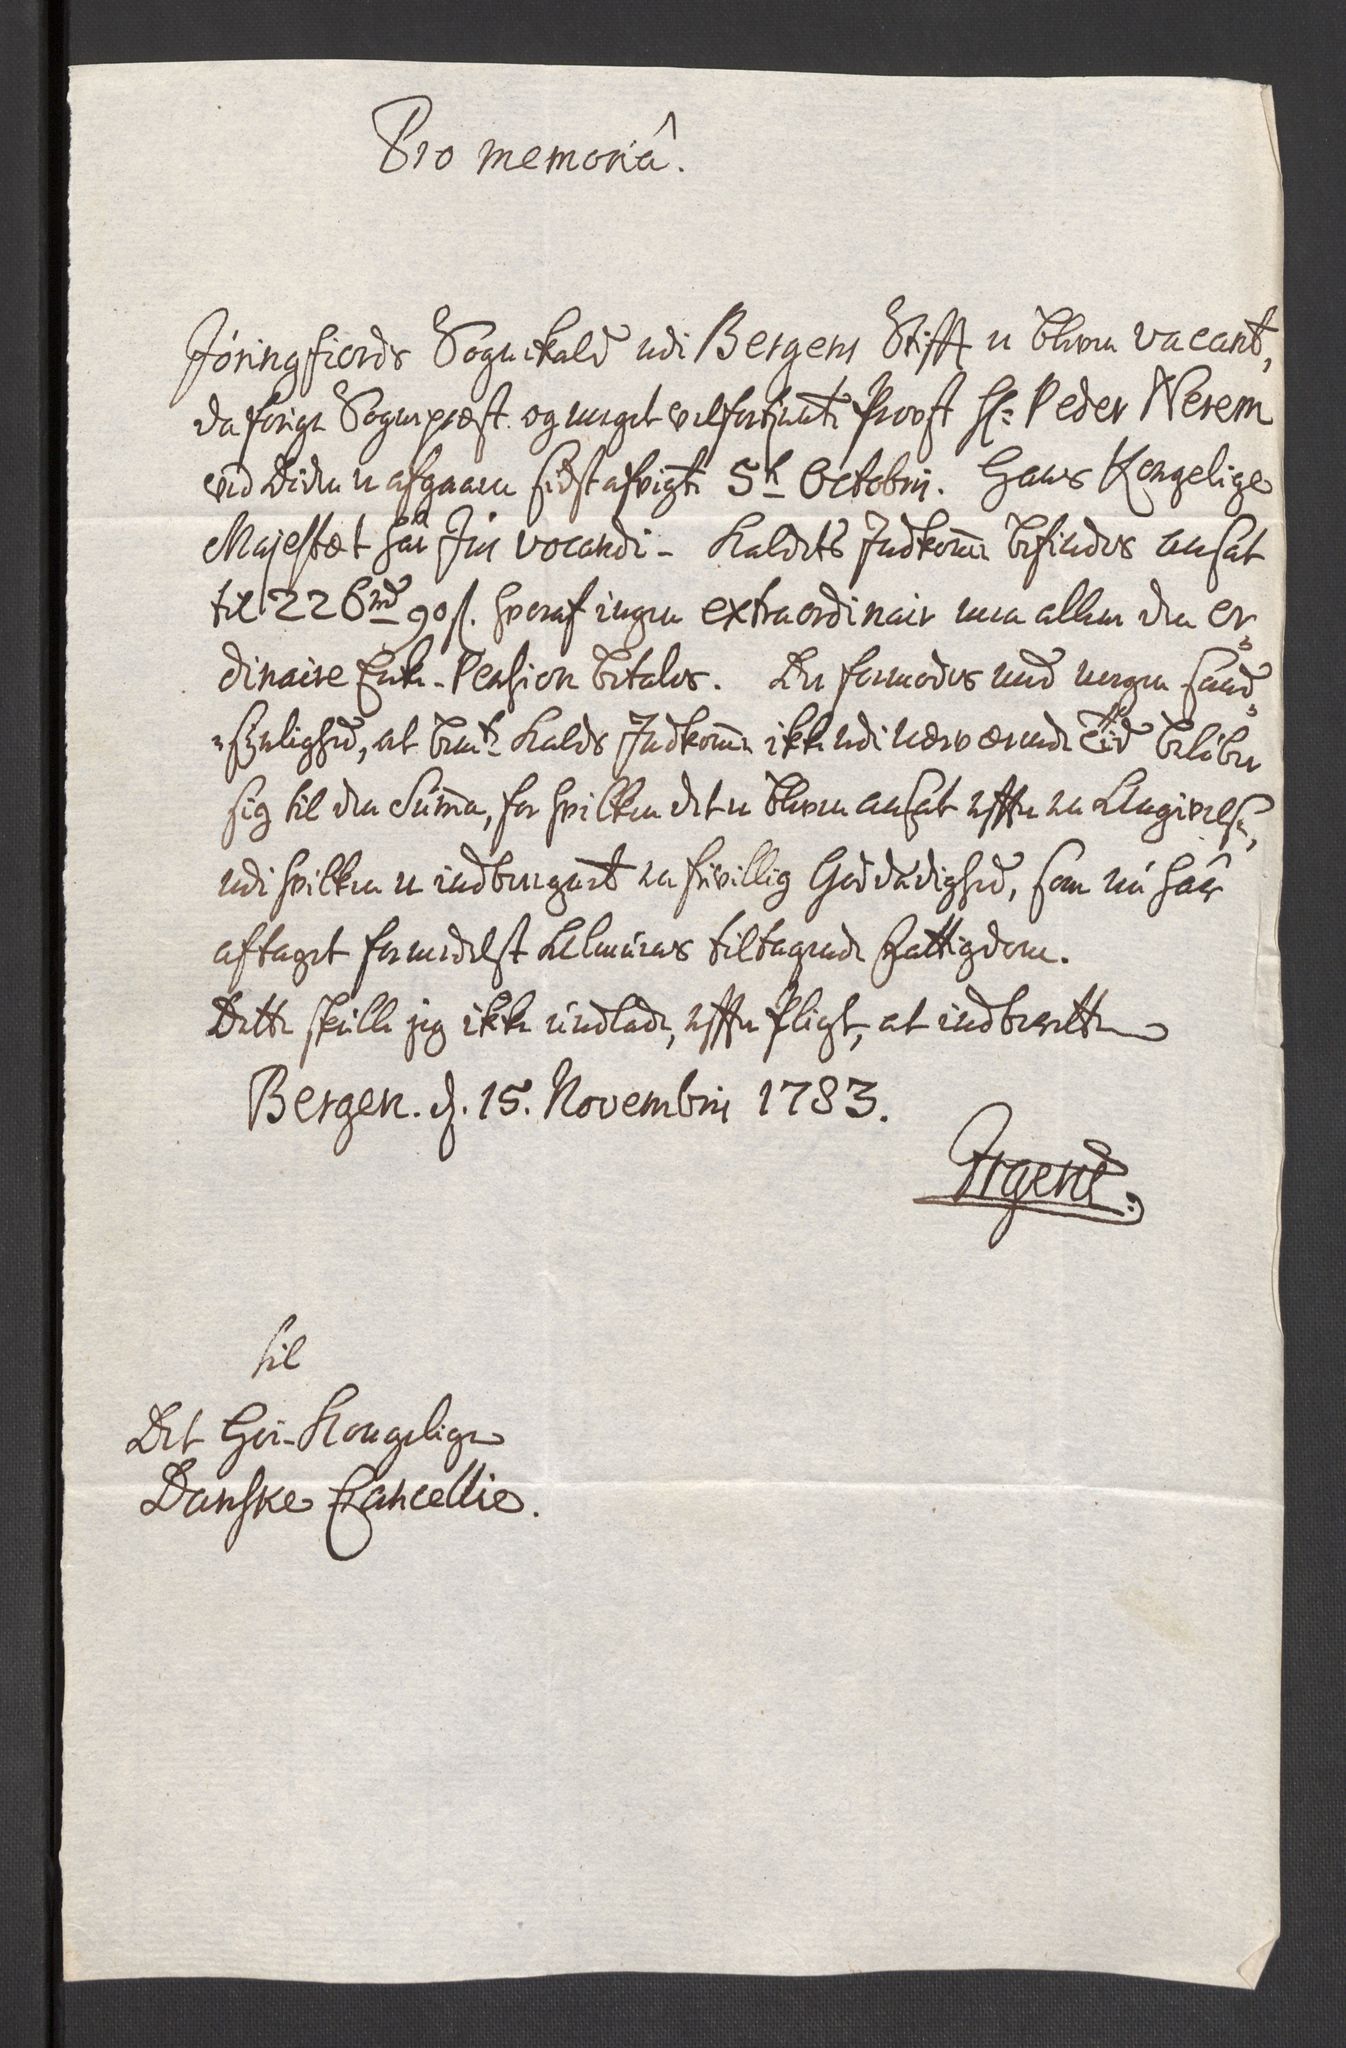 Pro memoriâ.
Jöringfiords Sognekald udi Bergens Stifft er bleven vacant,
da forige Sognepræst og meget velfortiente Provst Hr. Peder Nerem
ved Döden er afgaaen sidstafvigte 5te Octobris. Hans Kongelige
Majestæt har Jus vocandi - Kaldets Indkomme befindes ansat
til 226 rd 90 s. hvoraf ingen extraordinair men alleene den or-
dinaire Enke-Pension betales. Der formodes med megen Sand-
synlighed, at bemte Kalds Indkomme ikke udi nærværende Tiid belöber
sig til den Summa, for hvilken det er bleven ansat efter en Angivelse,
udi hvilken er indberegnet en frivillig Goddædighed, som nu har
aftaget formedelst Almuens tiltagende Fattigdom.
Dette skulle jeg ikke undlade, efter Pligt, at indberette
Bergen. d. 15. Novembris 1783.
Irgens.
til
Det Höi-Kongelige
Danske Cancellie.